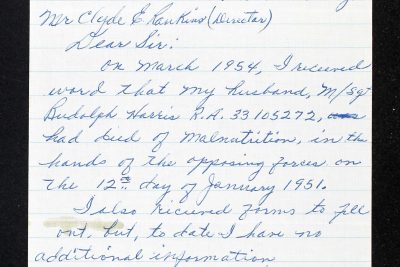 Mr Clyde E Rankins (Director)
Dear Sir:
on March 1954, I received
word that my husband, M/Sgt
Rudolph Harris R.A. 33105272,
had died of Malnutrition, in the
hands of the opposing forces on
the 12th day of January 1951.
I also received forms to fill
out, but, to date I have no
additional information